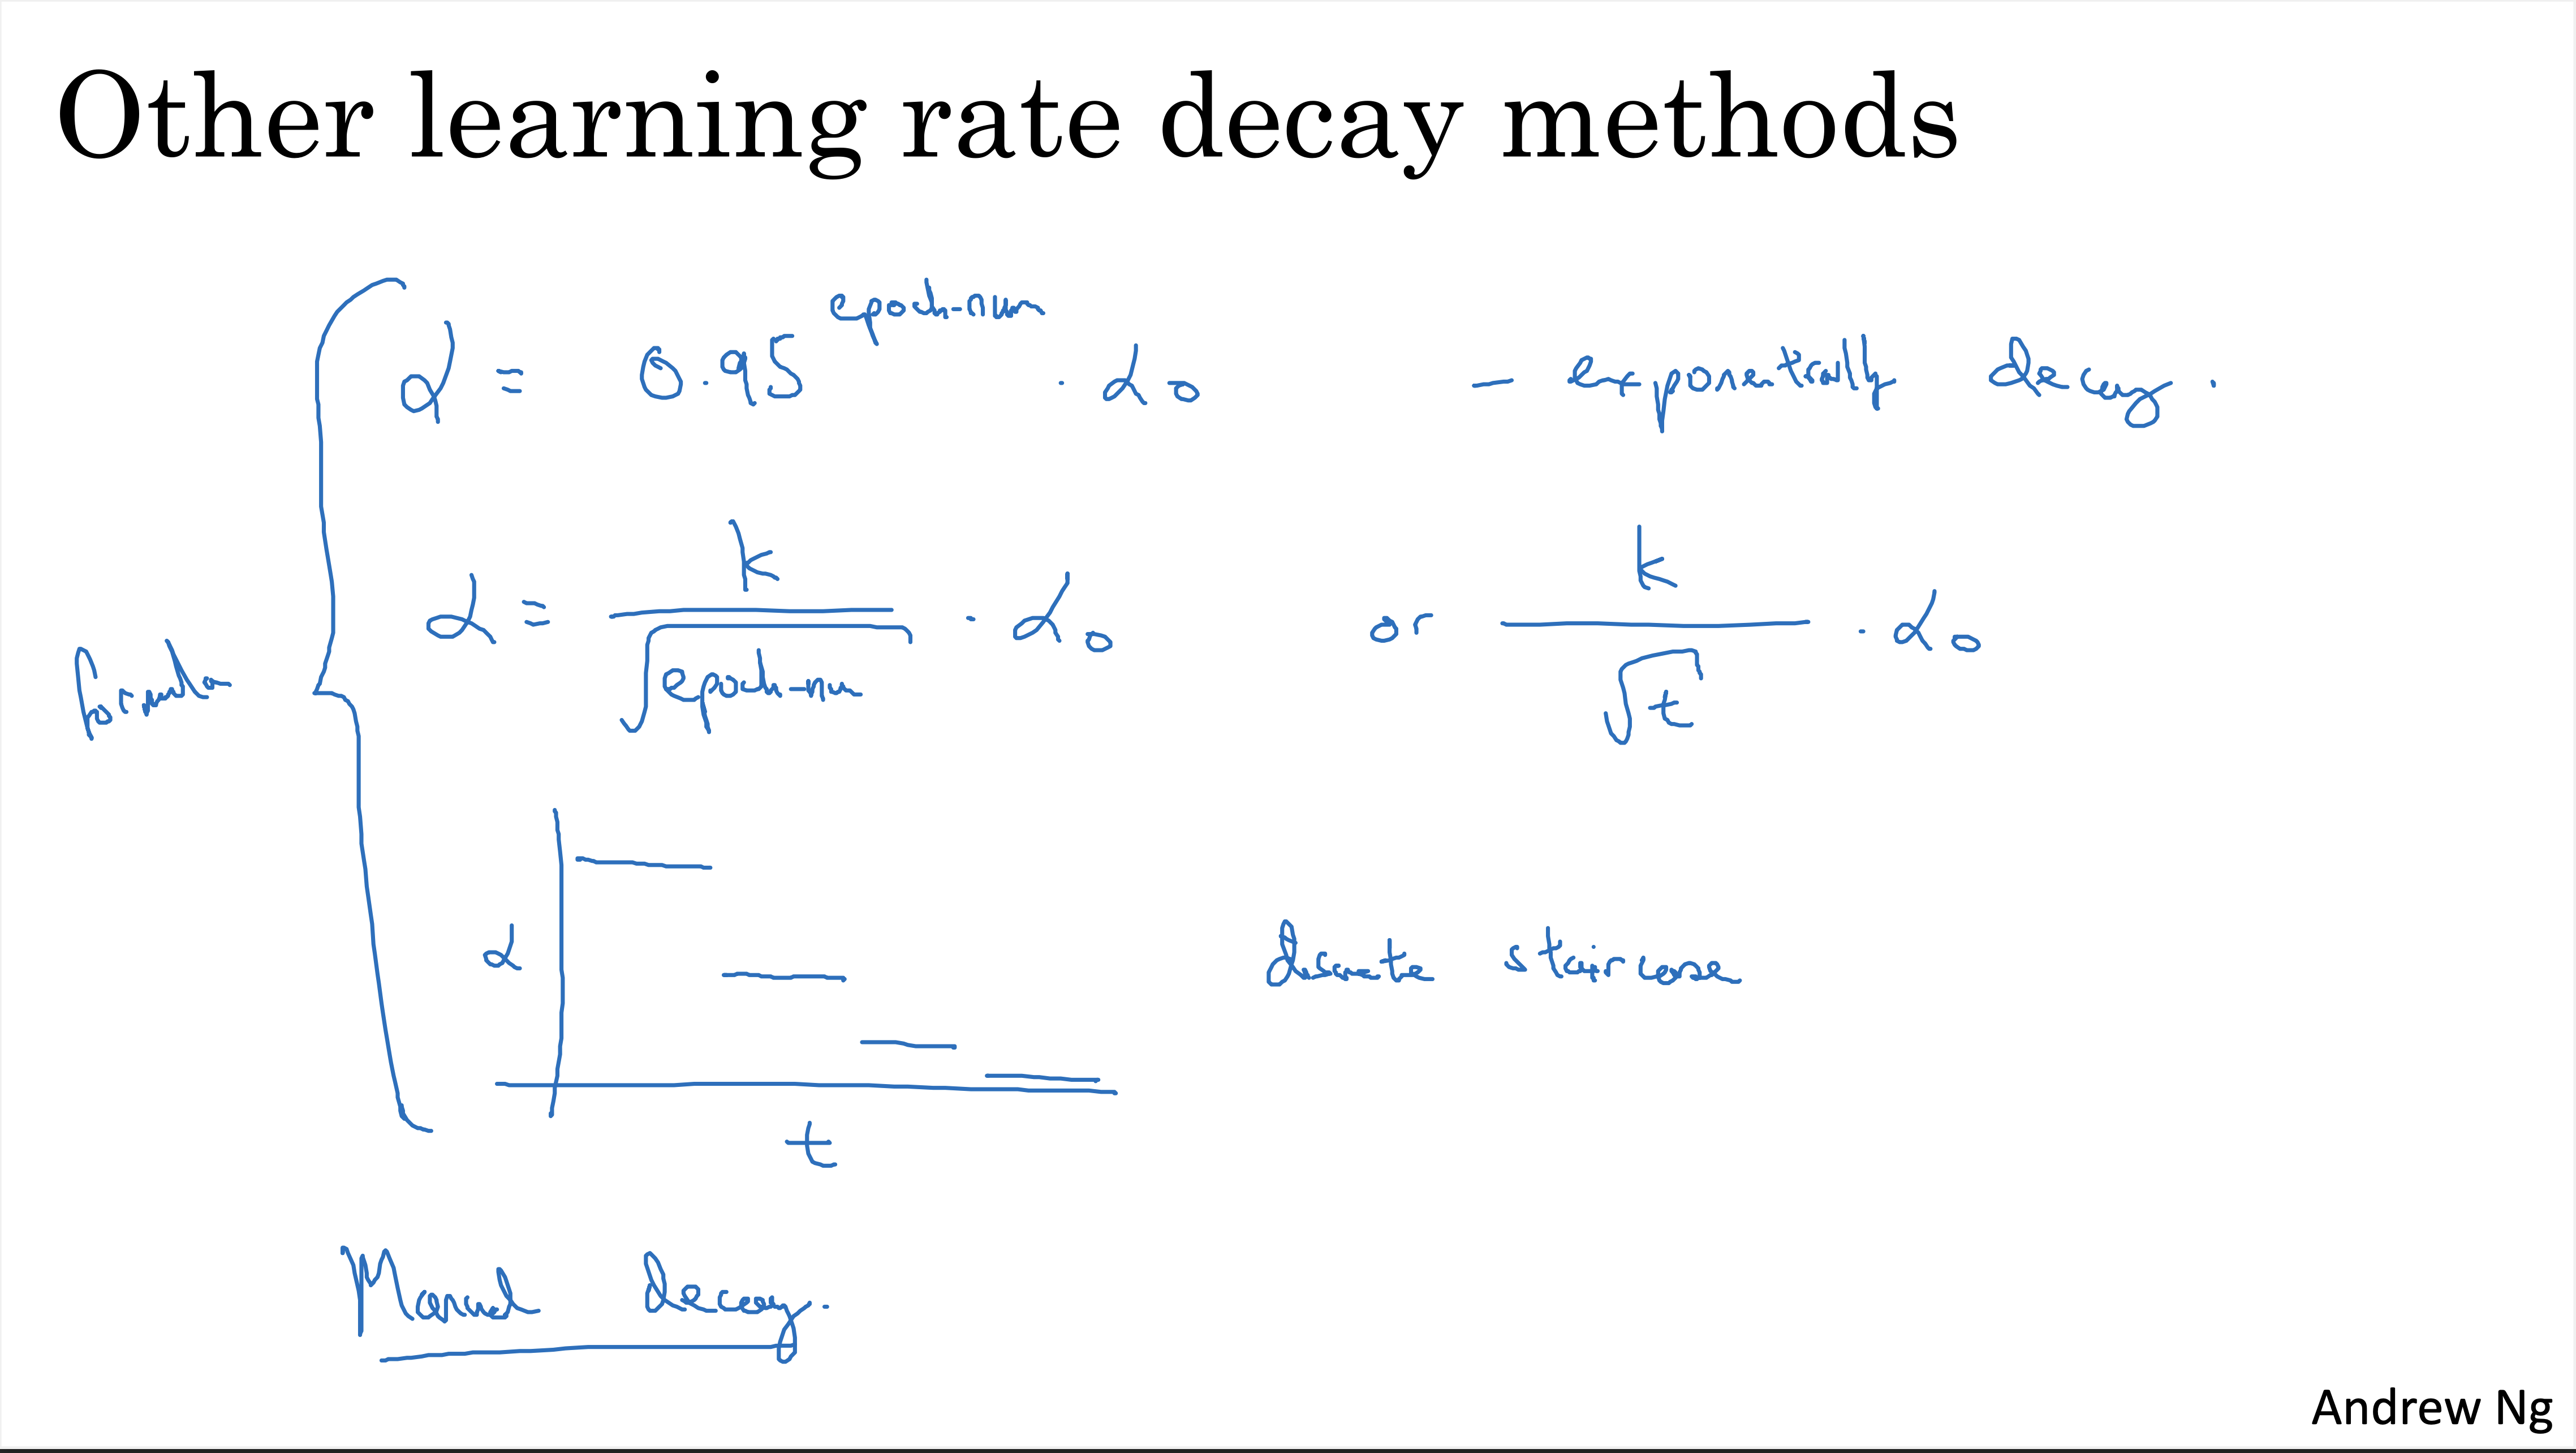 Other learning rate decay methods
α = 0.95^epoch-num · α₀ — exponentially decay.
α = k / √epoch-num · α₀ or k / √t · α₀
formula
α
discrete staircase
t
Manual decay.
Andrew Ng